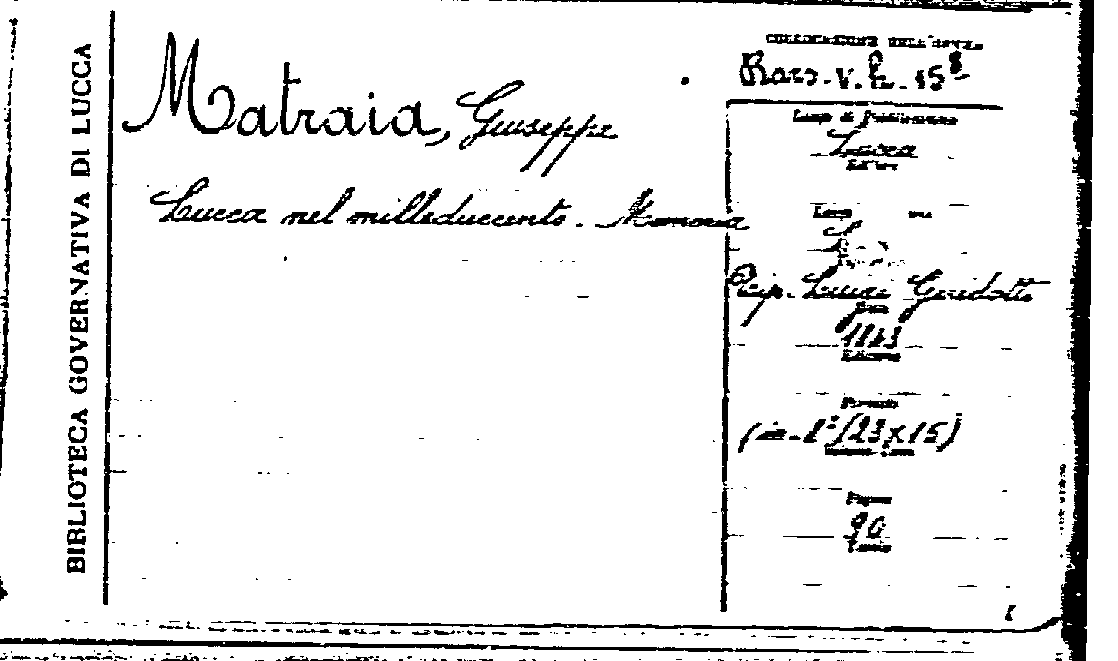 BIBLIOTECA GOVERNATIVA DI LUCCA
Matraia, Giuseppe
Lucca nel milleduecento. Memoria
COLLOCAZIONE DELL'OPERA
Luogo di Pubblicazione
Lucca
Tip. Luigi Guidotti
1843
Edizione
Formato
(in-8°/23x15)
Pagine
90